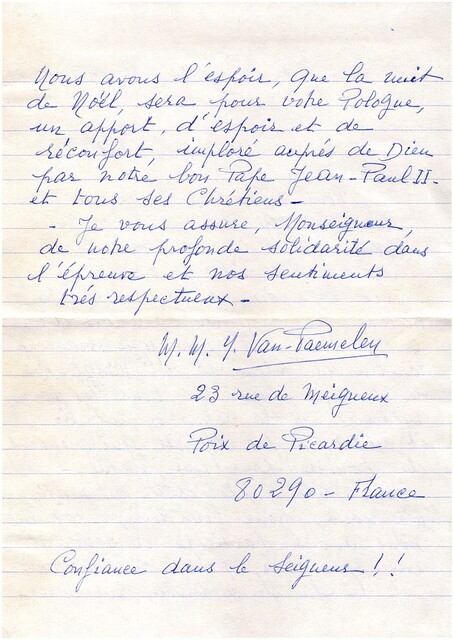 Nous avons l'espoir, que la nuit
de Noël, sera pour votre Pologne,
un apport, d'espoir et de
réconfort, imploré auprés de Dieu
par notre bon Pape Jean-Paul II -
et tous ses Chrétiens -
- Je vous assure, Monseigneur,
de notre profonde solidarité dans
l'épreuve et nos sentiments
trés respectueux -
M. M. Y. Van-Paemelen
23 rue de Meigneux
Poix de Picardie
80290 - France
Confiance dans le Seigneur !!